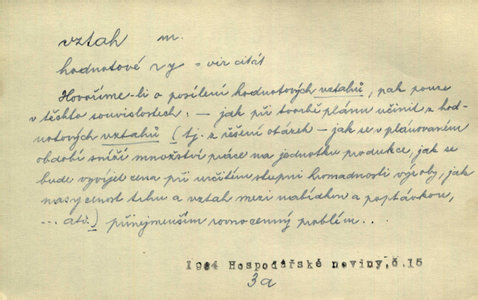 vztah m.
hodnotové v y = viz citát
Hovoříme-li o posílení hodnotových vztahů, pak pouze
v těchto souvislostech: — jak při tvorbě plánu učinit z hod-
notových vztahů (tj. z řešení otázek — jak se v plánovaném
období sníží množství práce na jednotku produkce, jak se
bude vyvíjet cena při určitém stupni hromadnosti výroby, jak
nasycenost trhu a vztah mezi nabídkou a poptávkou,
... atd.) přinejmenším rovnocenný problém...
1964 Hospodářské noviny, č. 15
3a